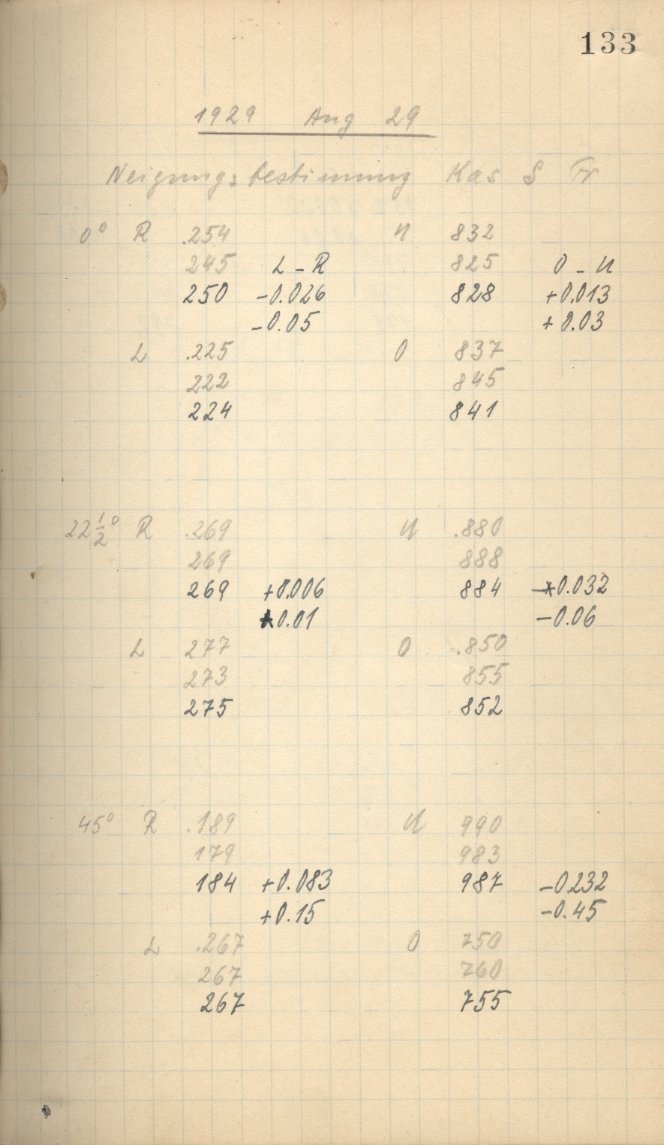 133
1929 Aug 29
Neigungsbestimmung Kas S Tr
0° R .254 U 832
245 L - R 825 O - U
250 -0.026 828 +0.013
-0.05 +0.03
L .225 O 837
222 845
224 841
22 1/2° R .269 U .880
269 888
269 +0.006 884 -0.032
+0.01 -0.06
L 277 O .850
273 855
275 852
45° R .189 U 990
179 983
184 +0.083 987 -0.232
+0.15 -0.45
L .267 O 750
267 760
267 755